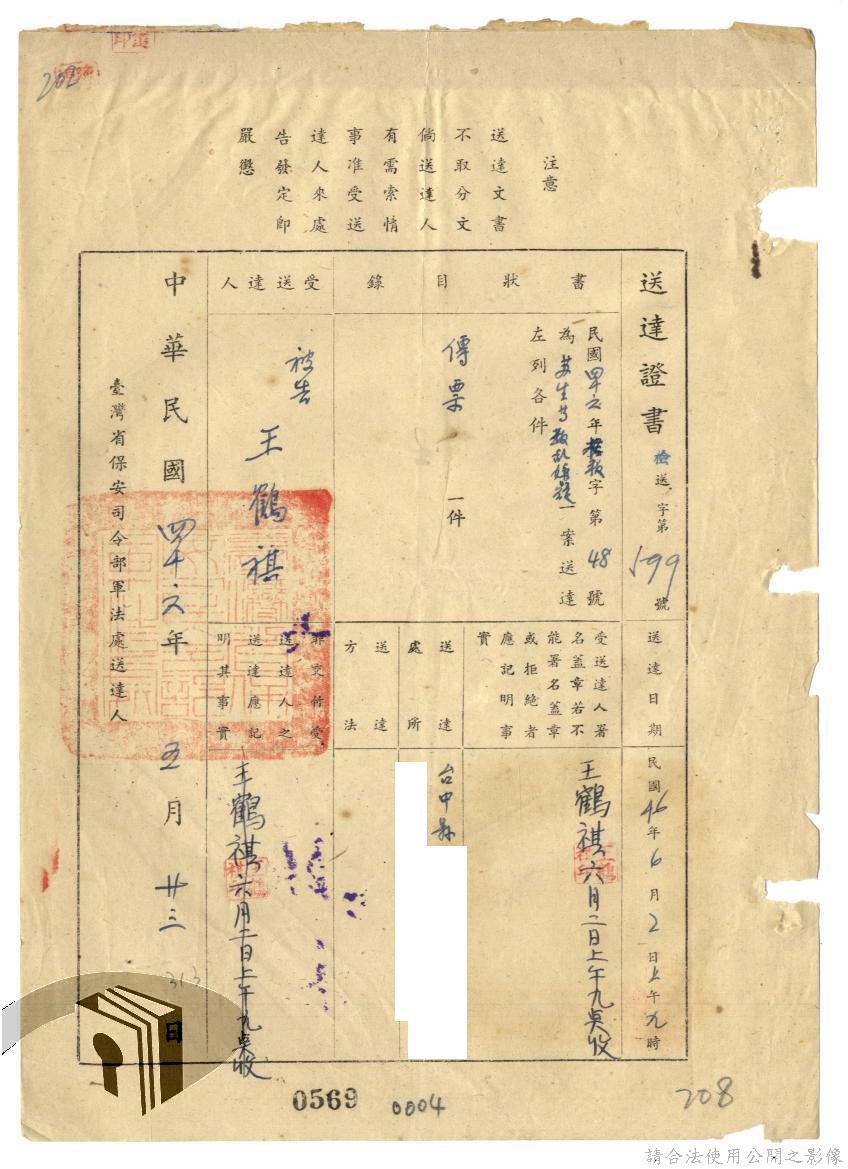 注意
送達文書
不取分文
倘送達人
有需索情
事准受送
達人來處
告發定即
嚴懲
送達證書 檢送字第599號
送達日期
民國46年6月2日上午九時
書狀目錄
民國四十六年 字第48號
為 一案送達
左列各件
傳票 一件
受送達人
被告 王鶴祺
受送達人署
名蓋章若不
能署名蓋章
或拒絕者
應記明事
實
王鶴祺六月二日上午九點收
送達
處所
台中縣
送達
方法
非交付受
送達人之
送達應記
明其事實
王鶴祺六月二日上午九點收
中華民國四十六年五月廿三日
臺灣省保安司令部軍法處送達人
313
202
0569
0004
208
請合法使用公開之影像